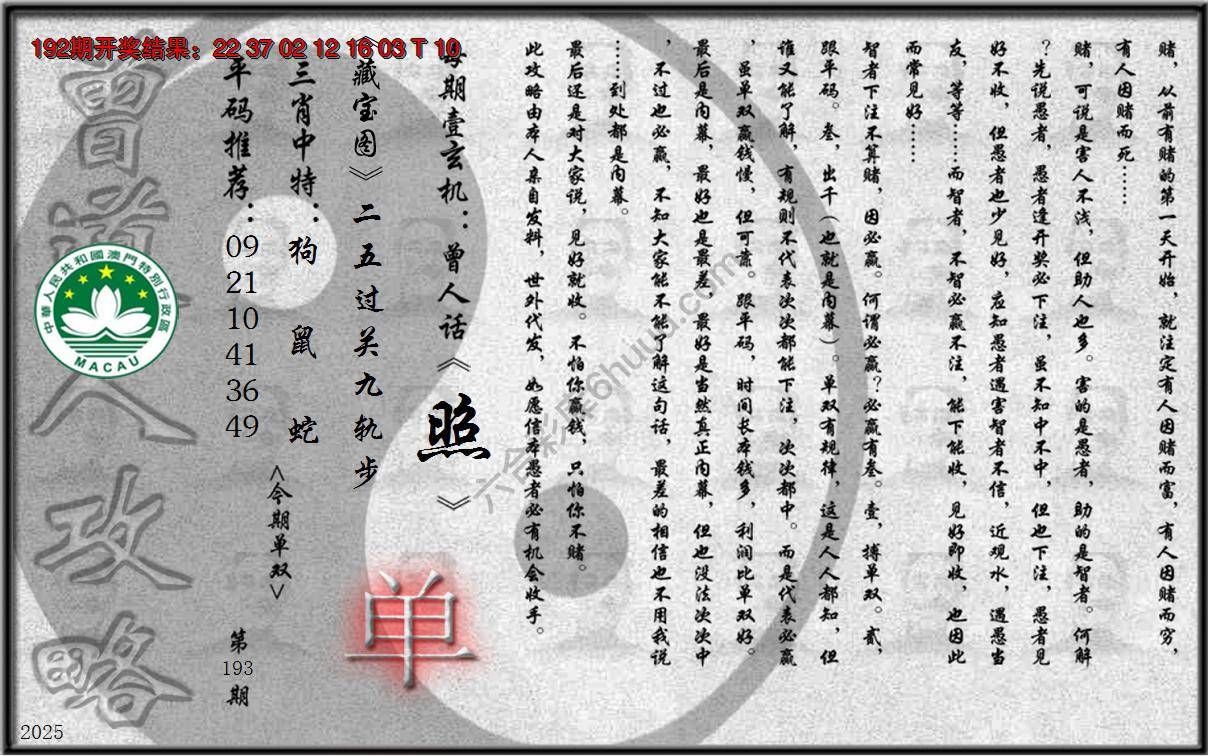 192期开奖结果：22 37 02 12 16 03 T 10
赌，从前有赌的第一天开始，就注定有人因赌而富，有人因赌而穷，
有人因赌而死……
赌，可说是害人不浅，但助人也多。害的是愚者，助的是智者。何解
？先说愚者，愚者逢开奖必下注，虽不知中不中，但也下注，愚者见
好不收，但愚者也少见好，应知愚者遇害智者不信，近观水，遇愚当
友，等等……而智者，不智必赢不注，能下能收，见好即收，也因此
而常见好……
智者下注不算赌，因必赢。何谓必赢？必赢有叁。壹，搏单双。贰，
跟平码。叁，出千（也就是内幕）。单双有规律，这是人人都知，但
谁又能了解，有规则不代表次次都能下注，次次都中。而是代表必赢
，虽单双赢钱慢，但可靠。跟平码，时间长本钱多，利润比单双好。
最后是内幕，最好也是最差，最好是当然真正内幕，但也没法次次中
，不过也必赢，不知大家能不能了解这句话，最差的相信也不用我说
……到处都是内幕。
最后还是对大家说，见好就收。不怕你赢钱，只怕你不赌。
此攻略由本人亲自发料，世外代发，如愿信本愚者必有机会收手。
每期壹玄机：曾人话《照》
《藏宝图》二五过关九轨步
三肖中特：狗 鼠 蛇
平码推荐：09 21 10 41 36 49
<今期单双>
单
第193期
曾道人攻略
中華人民共和國澳門特別行政區
MACAU
六合彩库6huu.com
2025